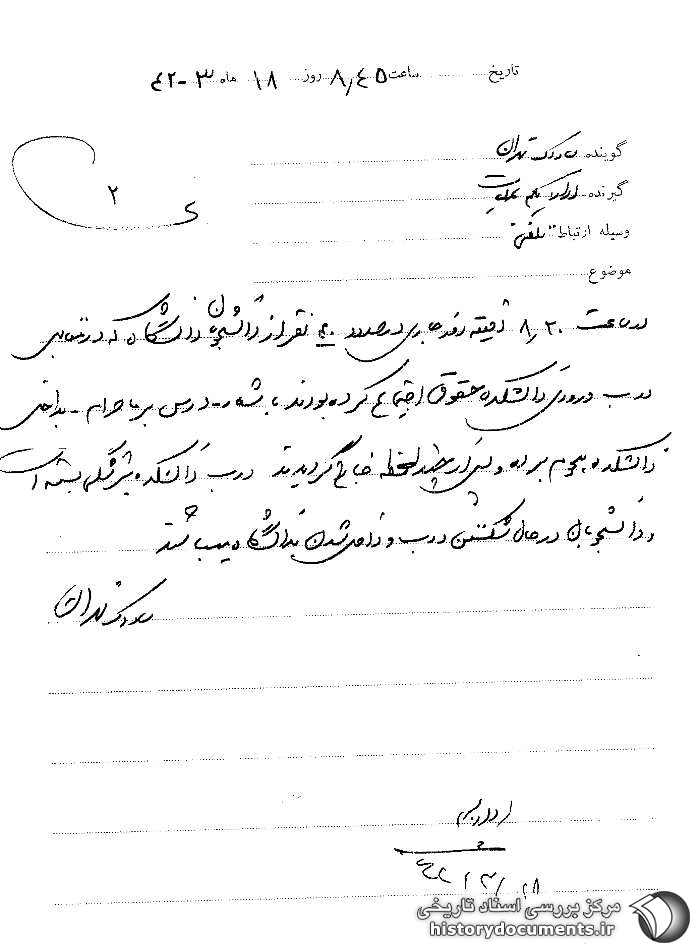 تاریخ ساعت ۸٫۴۵ روز ۱۸ ماه ۳-۴۲
گوینده ساواک تهران
گیرنده اداره یکم عملیات
۲
وسیله ارتباط تلفنی
موضوع
در ساعت ۸٫۳۰ دقیقه روز جاری در حدود ۴۰ نفر از دانشجویان دانشگاه که در مقابل
درب ورودی دانشکده حقوق اجتماع کرده بودند با شعار - درس بر ما حرام - بداخل
دانشکده هجوم برده و پس از چند لحظه خارج گردیدند درب دانشکده پزشکی بسته است
و دانشجویان در حال شکستن درب و داخل شدن بدانشگاه میباشند
ساواک تهران
۴۲/۳/۱۸
مرکز بررسی اسناد تاریخی
historydocuments.ir